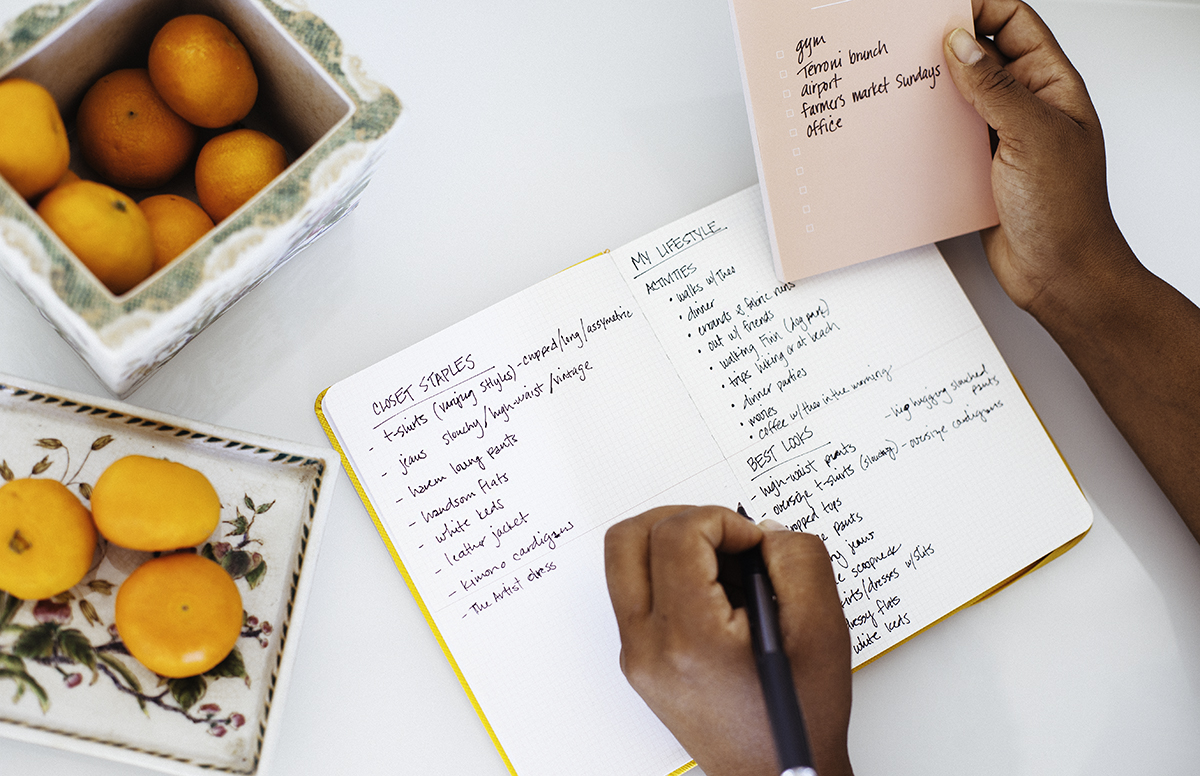 gym
Terroni brunch
airport
farmers market Sundays
office
CLOSET STAPLES
- t-shirts (varying styles) - cropped/long/assymetric
- jeans slouchy/high-waist/vintage
- harem loung pants
- handsom flats
- white keds
- leathr jacket
- kimono cardigans
- The Artist dress
MY LIFESTYLE
ACTIVITIES
• walks w/ theo
• dinner
• errands & fabric runs
• out w/ friends
• walking Finn (dog park)
• trips hiking or at beach
• dinner parties
• movies
• coffee w/ theo in the morning
BEST LOOKS
- high-waist pants - hip hugging slouched pants
- oversize t-shirts (slouchy) - oversize cardigans
tops
pants
jeans
scoopneck
/dresses w/slits
flats
white keds